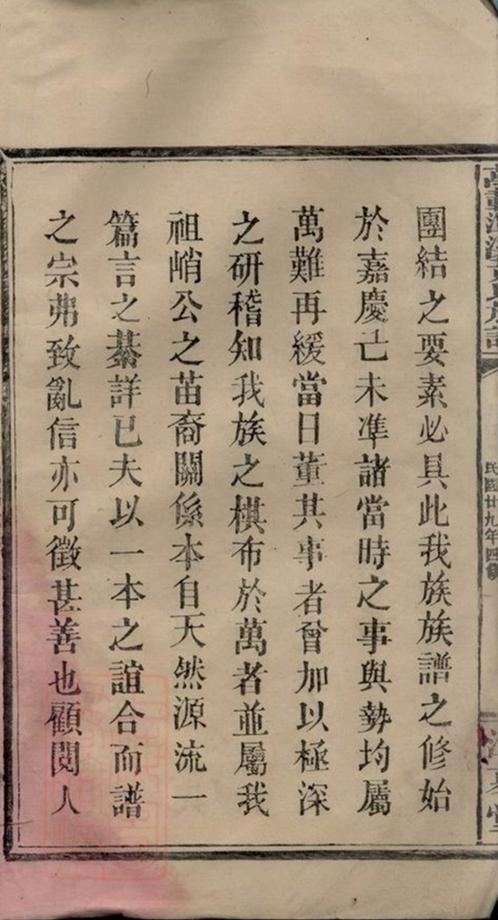 團結之要素必具此我族族譜之修始
於嘉慶己未準諸當時之事與勢均屬
萬難再緩當日董其事者曾加以極深
之研稽知我族之棋布於萬者並屬我
祖峭公之苗裔關係本自天然源流一
篇言之綦詳已夫以一本之誼合而譜
之宗弗致亂信亦可徵甚善也顧閱人
民國廿九年四修